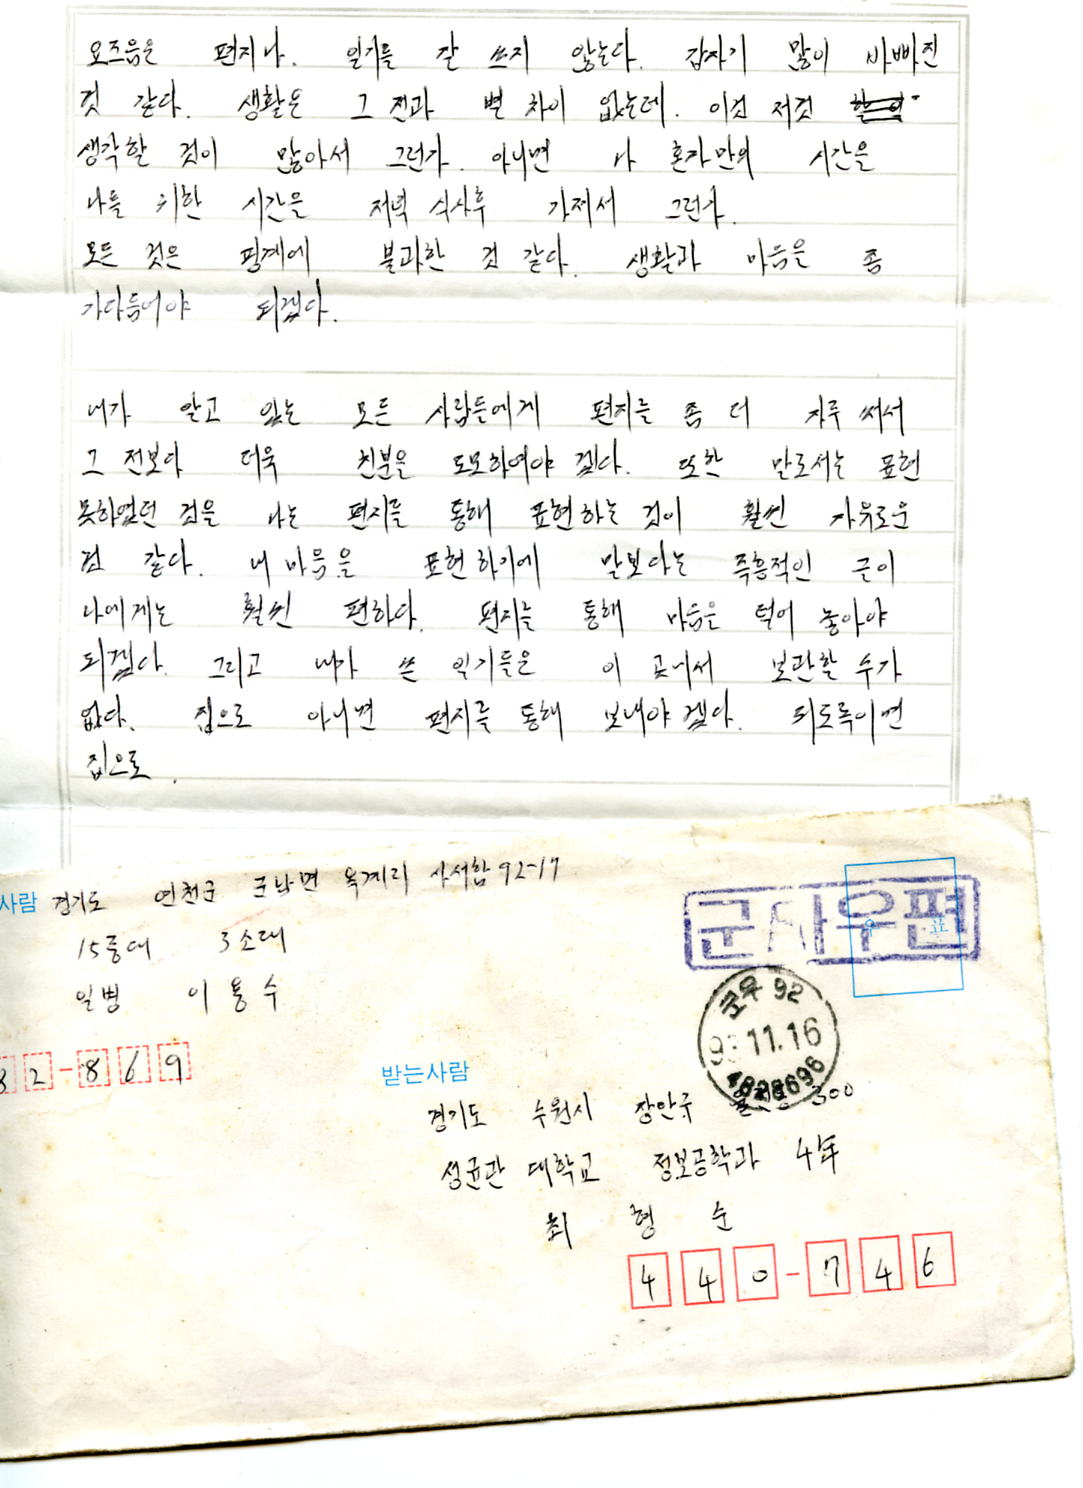 요즈음은 편지나. 일기를 잘 쓰지 않는다. 갑자기 많이 바빠진
것 같다. 생활은 그 전과 별 차이 없는데. 이것 저것
생각할 것이 많아서 그런가. 아니면 나 혼자만의 시간을
나를 위한 시간을 저녁 식사후 가져서 그런가.
모든 것은 핑계에 불과한 것 같다. 생활과 마음을 좀
가다듬어야 되겠다.
내가 알고 있는 모든 사람들에게 편지를 좀 더 자주 써서
그 전보다 더욱 친분을 도모하여야 겠다. 또한 말로서는 표현
못하였던 것을 나는 편지를 통해 표현하는 것이 훨씬 자유로운
것 같다. 내 마음을 표현하기에 말보다는 즉흥적인 글이
나에게는 훨씬 편하다. 편지를 통해 마음을 털어 놓아야
되겠다. 그리고 내가 쓴 일기들은 이 곳에서 보관할 수가
없다. 집으로 아니면 편지를 통해 보내야 겠다. 되도록이면
집으로.
사람 경기도 연천군 군남면 옥계리 사서함 92-17
15중대 3소대
일병 이용수
82-869
군사우편
우표
군우 92
11.16
받는사람
경기도 수원시 장안구 300
성균관 대학교 정보공학과 4年
최형순
440-746